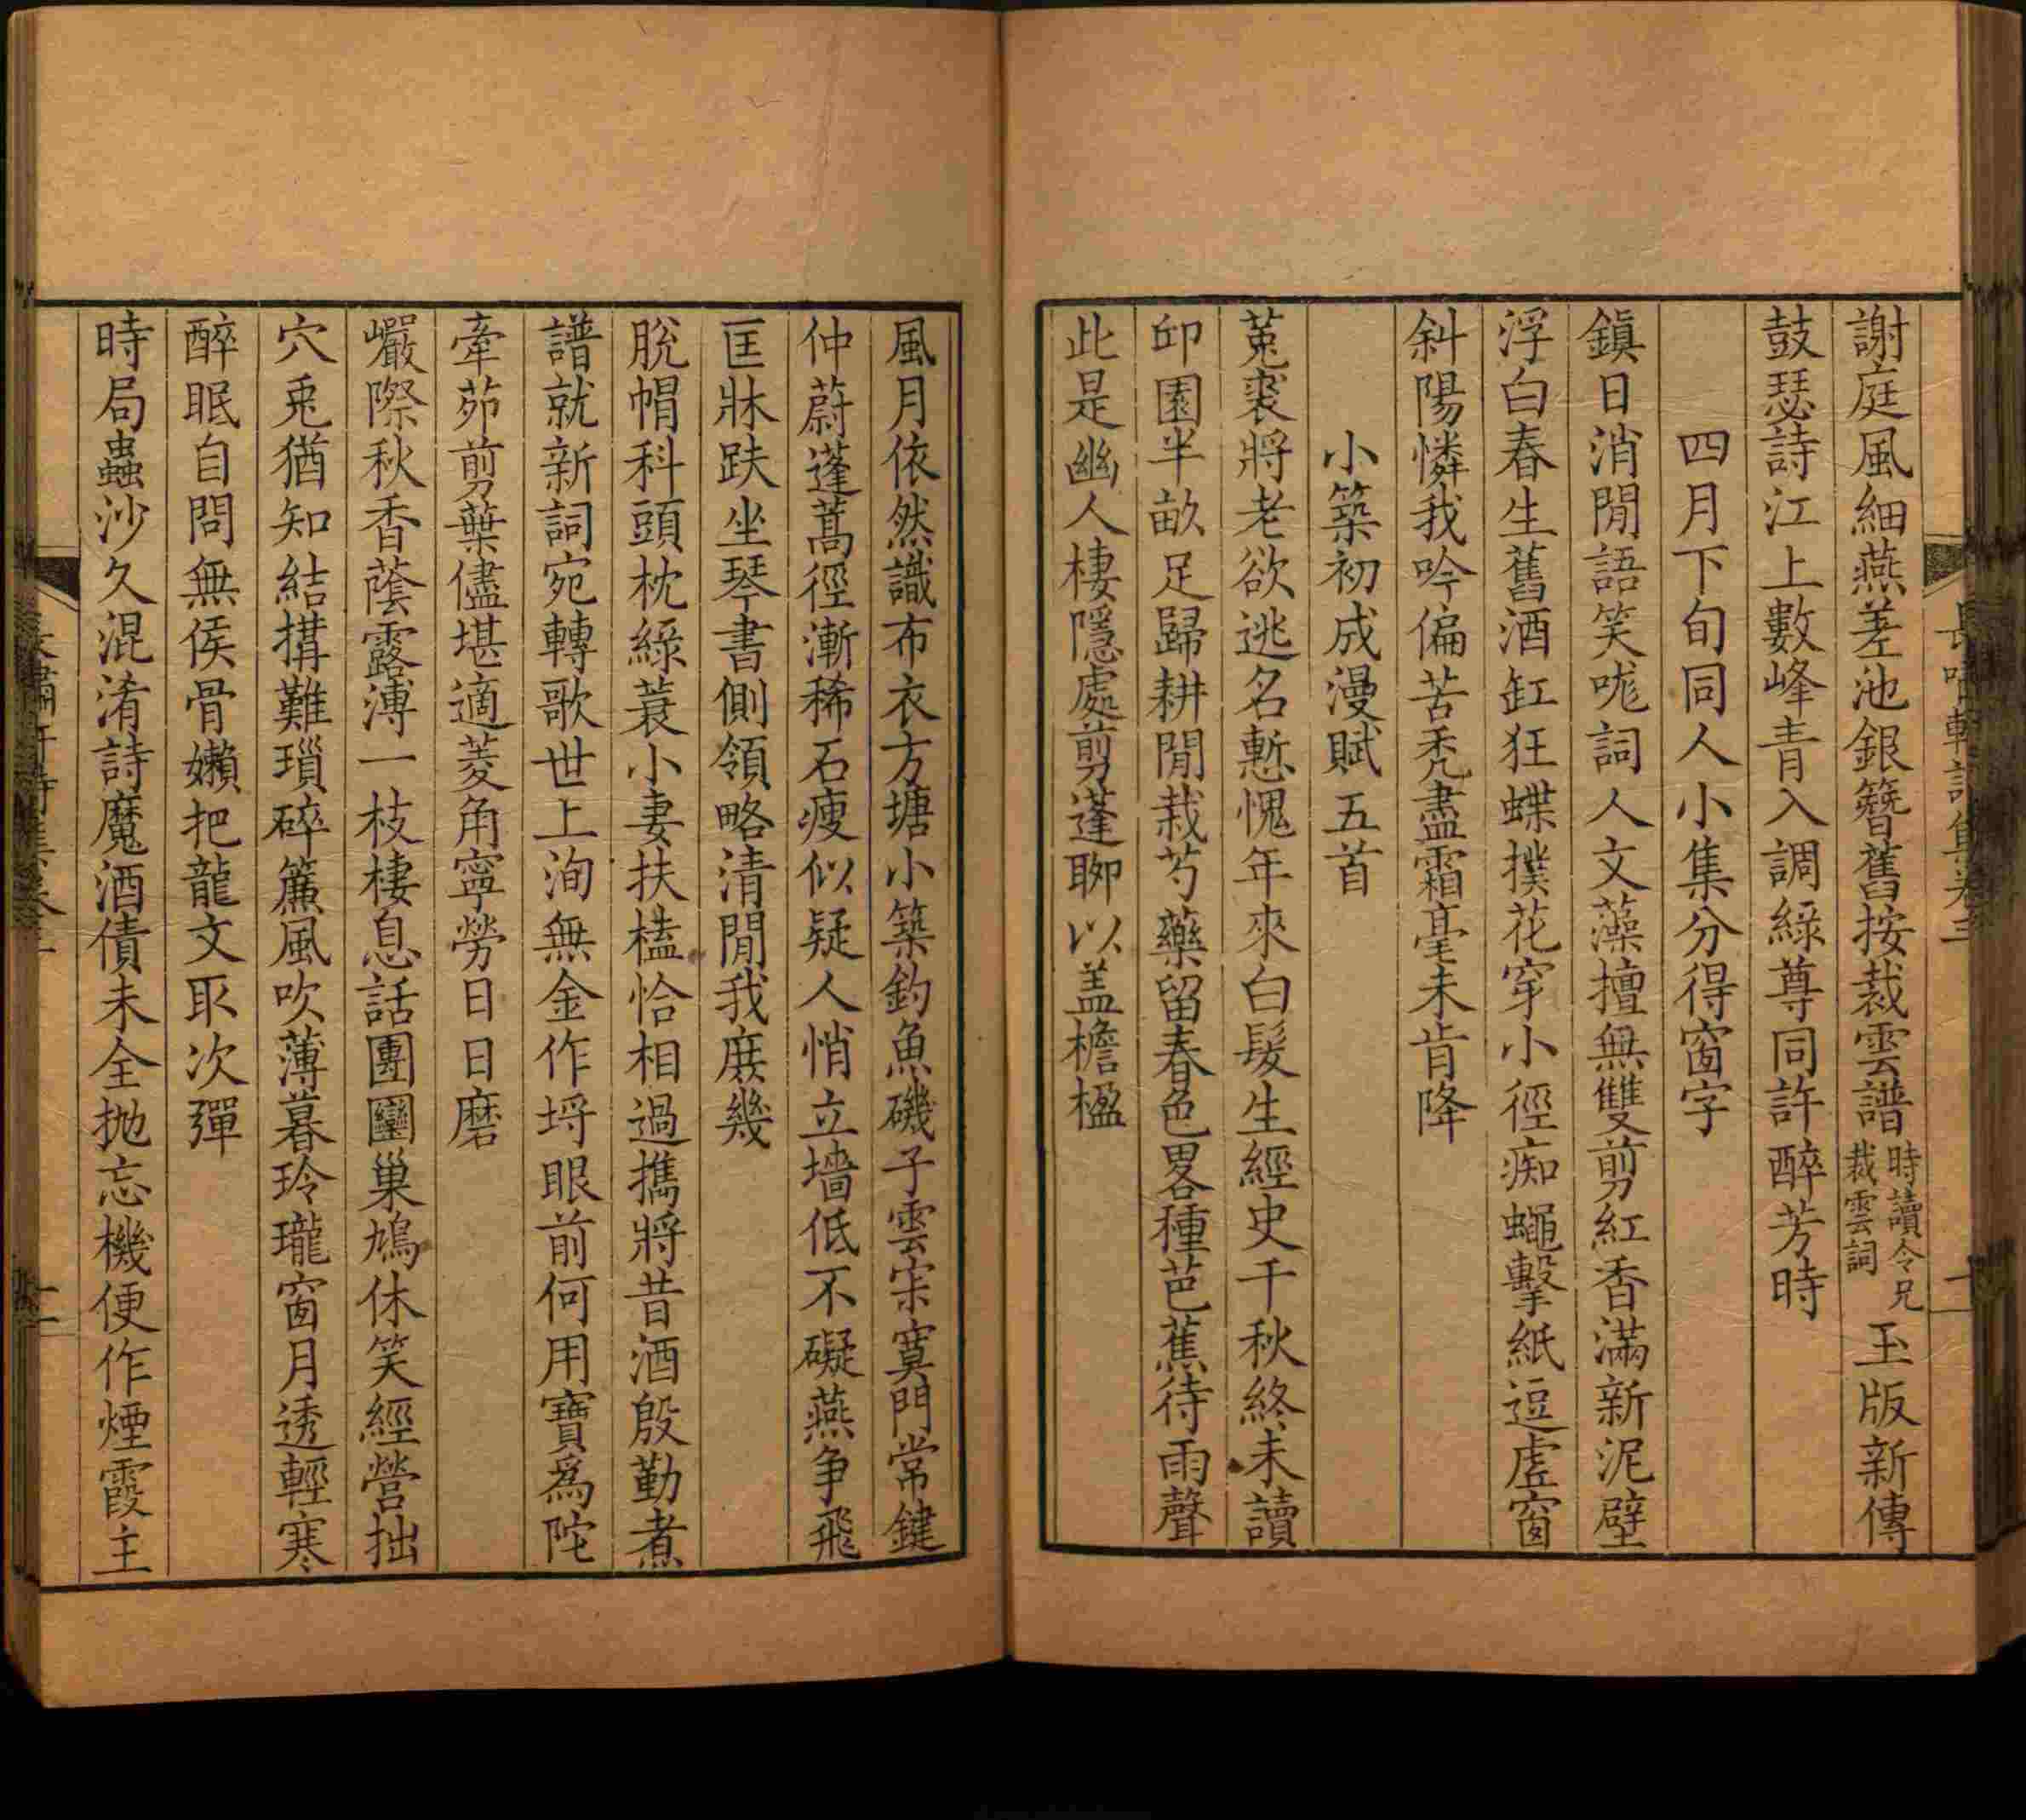 謝庭風細燕差池銀簪舊按裁雲譜時讀令兄裁雲詞玉版新傳
鼓瑟詩江上數峰青入調綠尊同許醉芳時
四月下旬同人小集分得窗字
鎮日消閒語笑哤詞人文藻擅無雙剪紅香滿新泥壁
浮白春生舊酒缸狂蝶撲花穿小徑痴蠅擊紙逗虛窗
斜陽憐我吟偏苦禿盡霜毫未肯降
小築初成漫賦五首
菟裘將老欲逃名慙愧年來白髮生經史千秋終未讀
邱園半畝足歸耕閒栽芍藥留春色畧種芭蕉待雨聲
此是幽人棲隱處剪蓬聊以盖檐楹
風月依然識布衣方塘小築釣魚磯子雲宋寞門常鍵
仲蔚蓬蒿徑漸稀石瘦似疑人悄立墻低不礙燕争飛
匡牀趺坐琴書側領略清閒我庶幾
脫帽科頭枕綠蓑小妻扶榼恰相過攜將昔酒殷勤煮
譜就新詞宛轉歌世上洵無金作埒眼前何用寶爲陀
牽茆剪葉儘堪適菱角寧勞日日磨
巖際秋香蔭露漙一枝棲息話團圞巢鳩休笑經營拙
穴兎猶知結搆難瑣碎簾風吹薄暮玲瓏窗月透輕寒
醉眠自問無侯骨嬾把龍文取次彈
時局蟲沙久混淆詩魔酒債未全抛忘機便作煙霞主